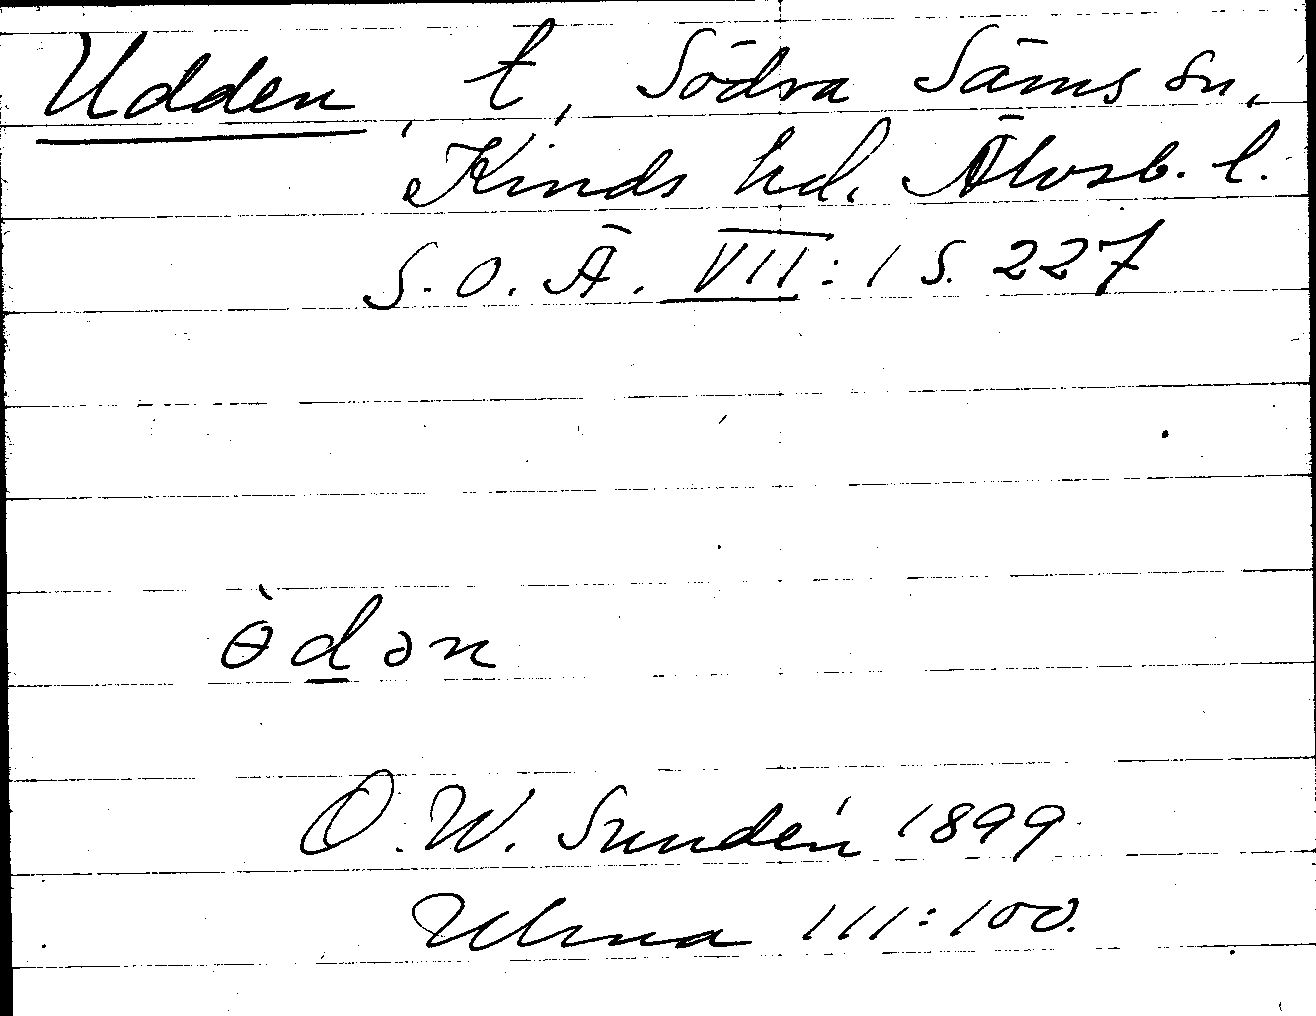 Udden, t, Södra Säms sn,
Kinds hd. Älvsb. l.
S. O. Ä. VII: 1 S. 227
ɵ̀dən
O. W. Sundén 1899
Ulma 111:100.